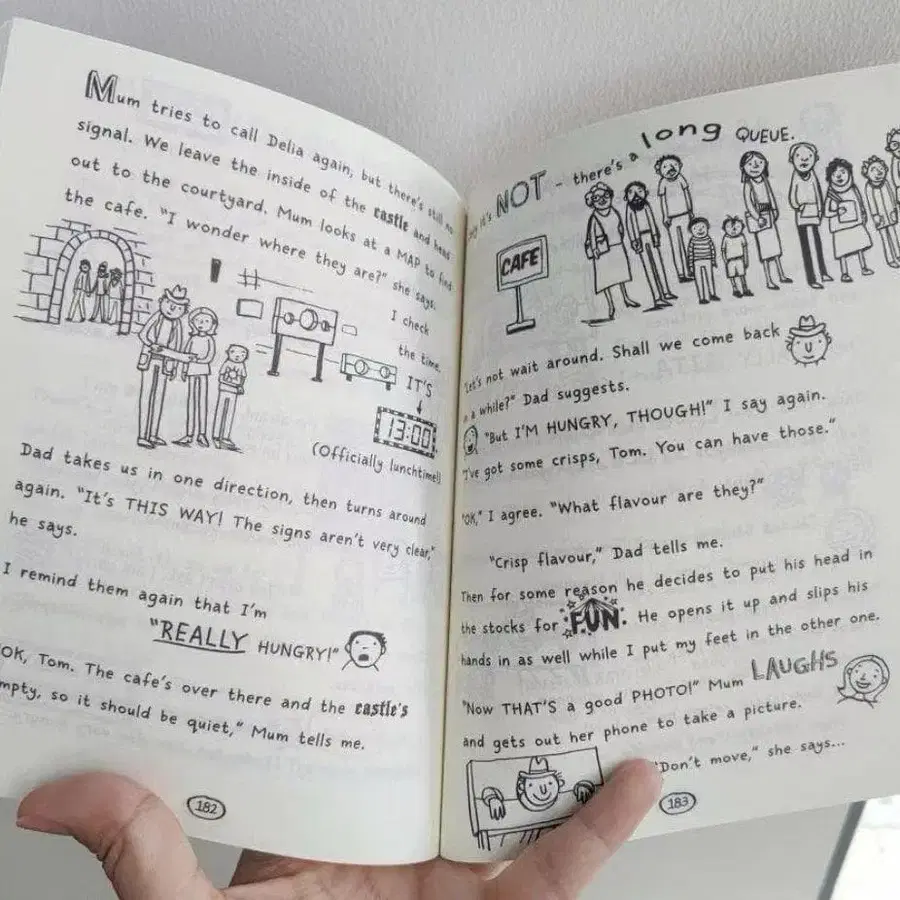 Mum tries to call Delia again, but there's still no
signal. We leave the inside of the castle and head
out to the courtyard. Mum looks at a MAP to find
the cafe. "I wonder where they are?" she says.
I check
the time.
IT'S
13:00
(Officially lunchtime!)
Dad takes us in one direction, then turns around
again. "It's THIS WAY! The signs aren't very clear,"
he says.
I remind them again that I'm
"REALLY HUNGRY!"
"OK, Tom. The cafe's over there and the castle's
empty, so it should be quiet," Mum tells me.
182
it's NOT - there's a long QUEUE.
CAFE
"Let's not wait around. Shall we come back
in a while?" Dad suggests.
"But I'M HUNGRY, THOUGH!" I say again.
"I've got some crisps, Tom. You can have those."
"OK," I agree. "What flavour are they?"
"Crisp flavour," Dad tells me.
Then for some reason he decides to put his head in
the stocks for FUN. He opens it up and slips his
hands in as well while I put my feet in the other one.
"Now THAT'S a good PHOTO!" Mum LAUGHS
and gets out her phone to take a picture.
"Don't move," she says...
183